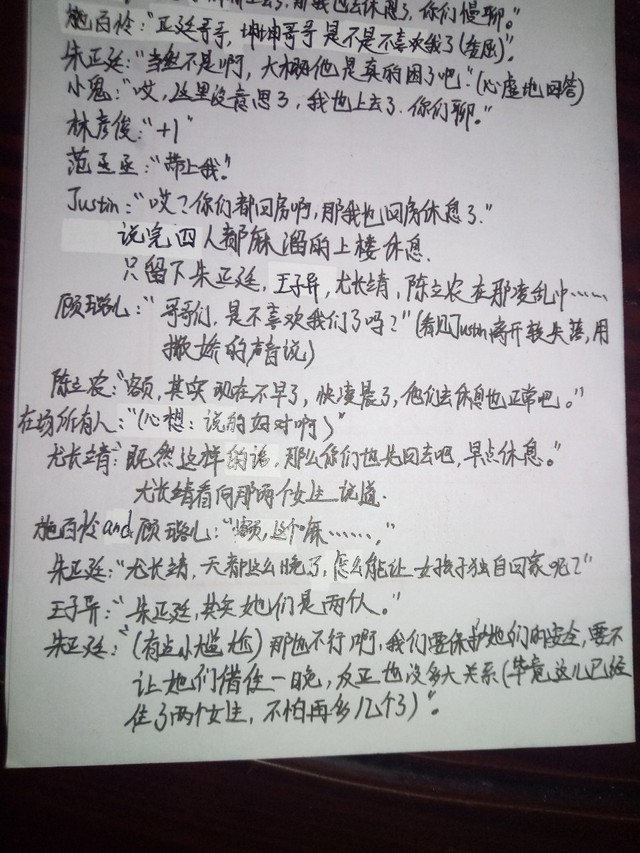 我也去休息了,你们慢聊。”
施百怜:“正廷哥哥,坤坤哥哥是不是不喜欢我了(委屈)”。
朱正廷:“当然不是啊,大概他是真的困了吧.”(心虚地回答)
小鬼:“哎,这里没意思了,我也上去了.你们聊。”
林彦俊:“+1”
范丞丞:“带上我。”
Justin:“哎?你们都回房啊,那我也回房休息了.”
说完四人都麻溜的上楼休息.
只留下朱正廷,王子异,尤长靖,陈立农在那凌乱中……
顾璐儿:“哥哥们,是不喜欢我们了吗?”(看见Justin离开较失落,用
撒娇的声音说)
陈立农:“额,其实现在不早了,快凌晨了,他们去休息也正常吧。”
在场所有人:“(心想:说的好对啊)”
尤长靖:“既然这样的话,那么你们也先回去吧,早点休息。”
尤长靖看向那两个女生说道.
施百怜and顾璐儿:“额,这个嘛……,”
朱正廷:“尤长靖,天都这么晚了,怎么能让女孩子独自回家呢?”
王子异:“朱正廷,其实她们是两个人。”
朱正廷:“(有点小尴尬)那也不行啊,我们要保护她们的安全,要不
让她们借住一晚,反正也没多大关系(毕竟这儿已经
住了两个女生,不怕再多几个了)”。